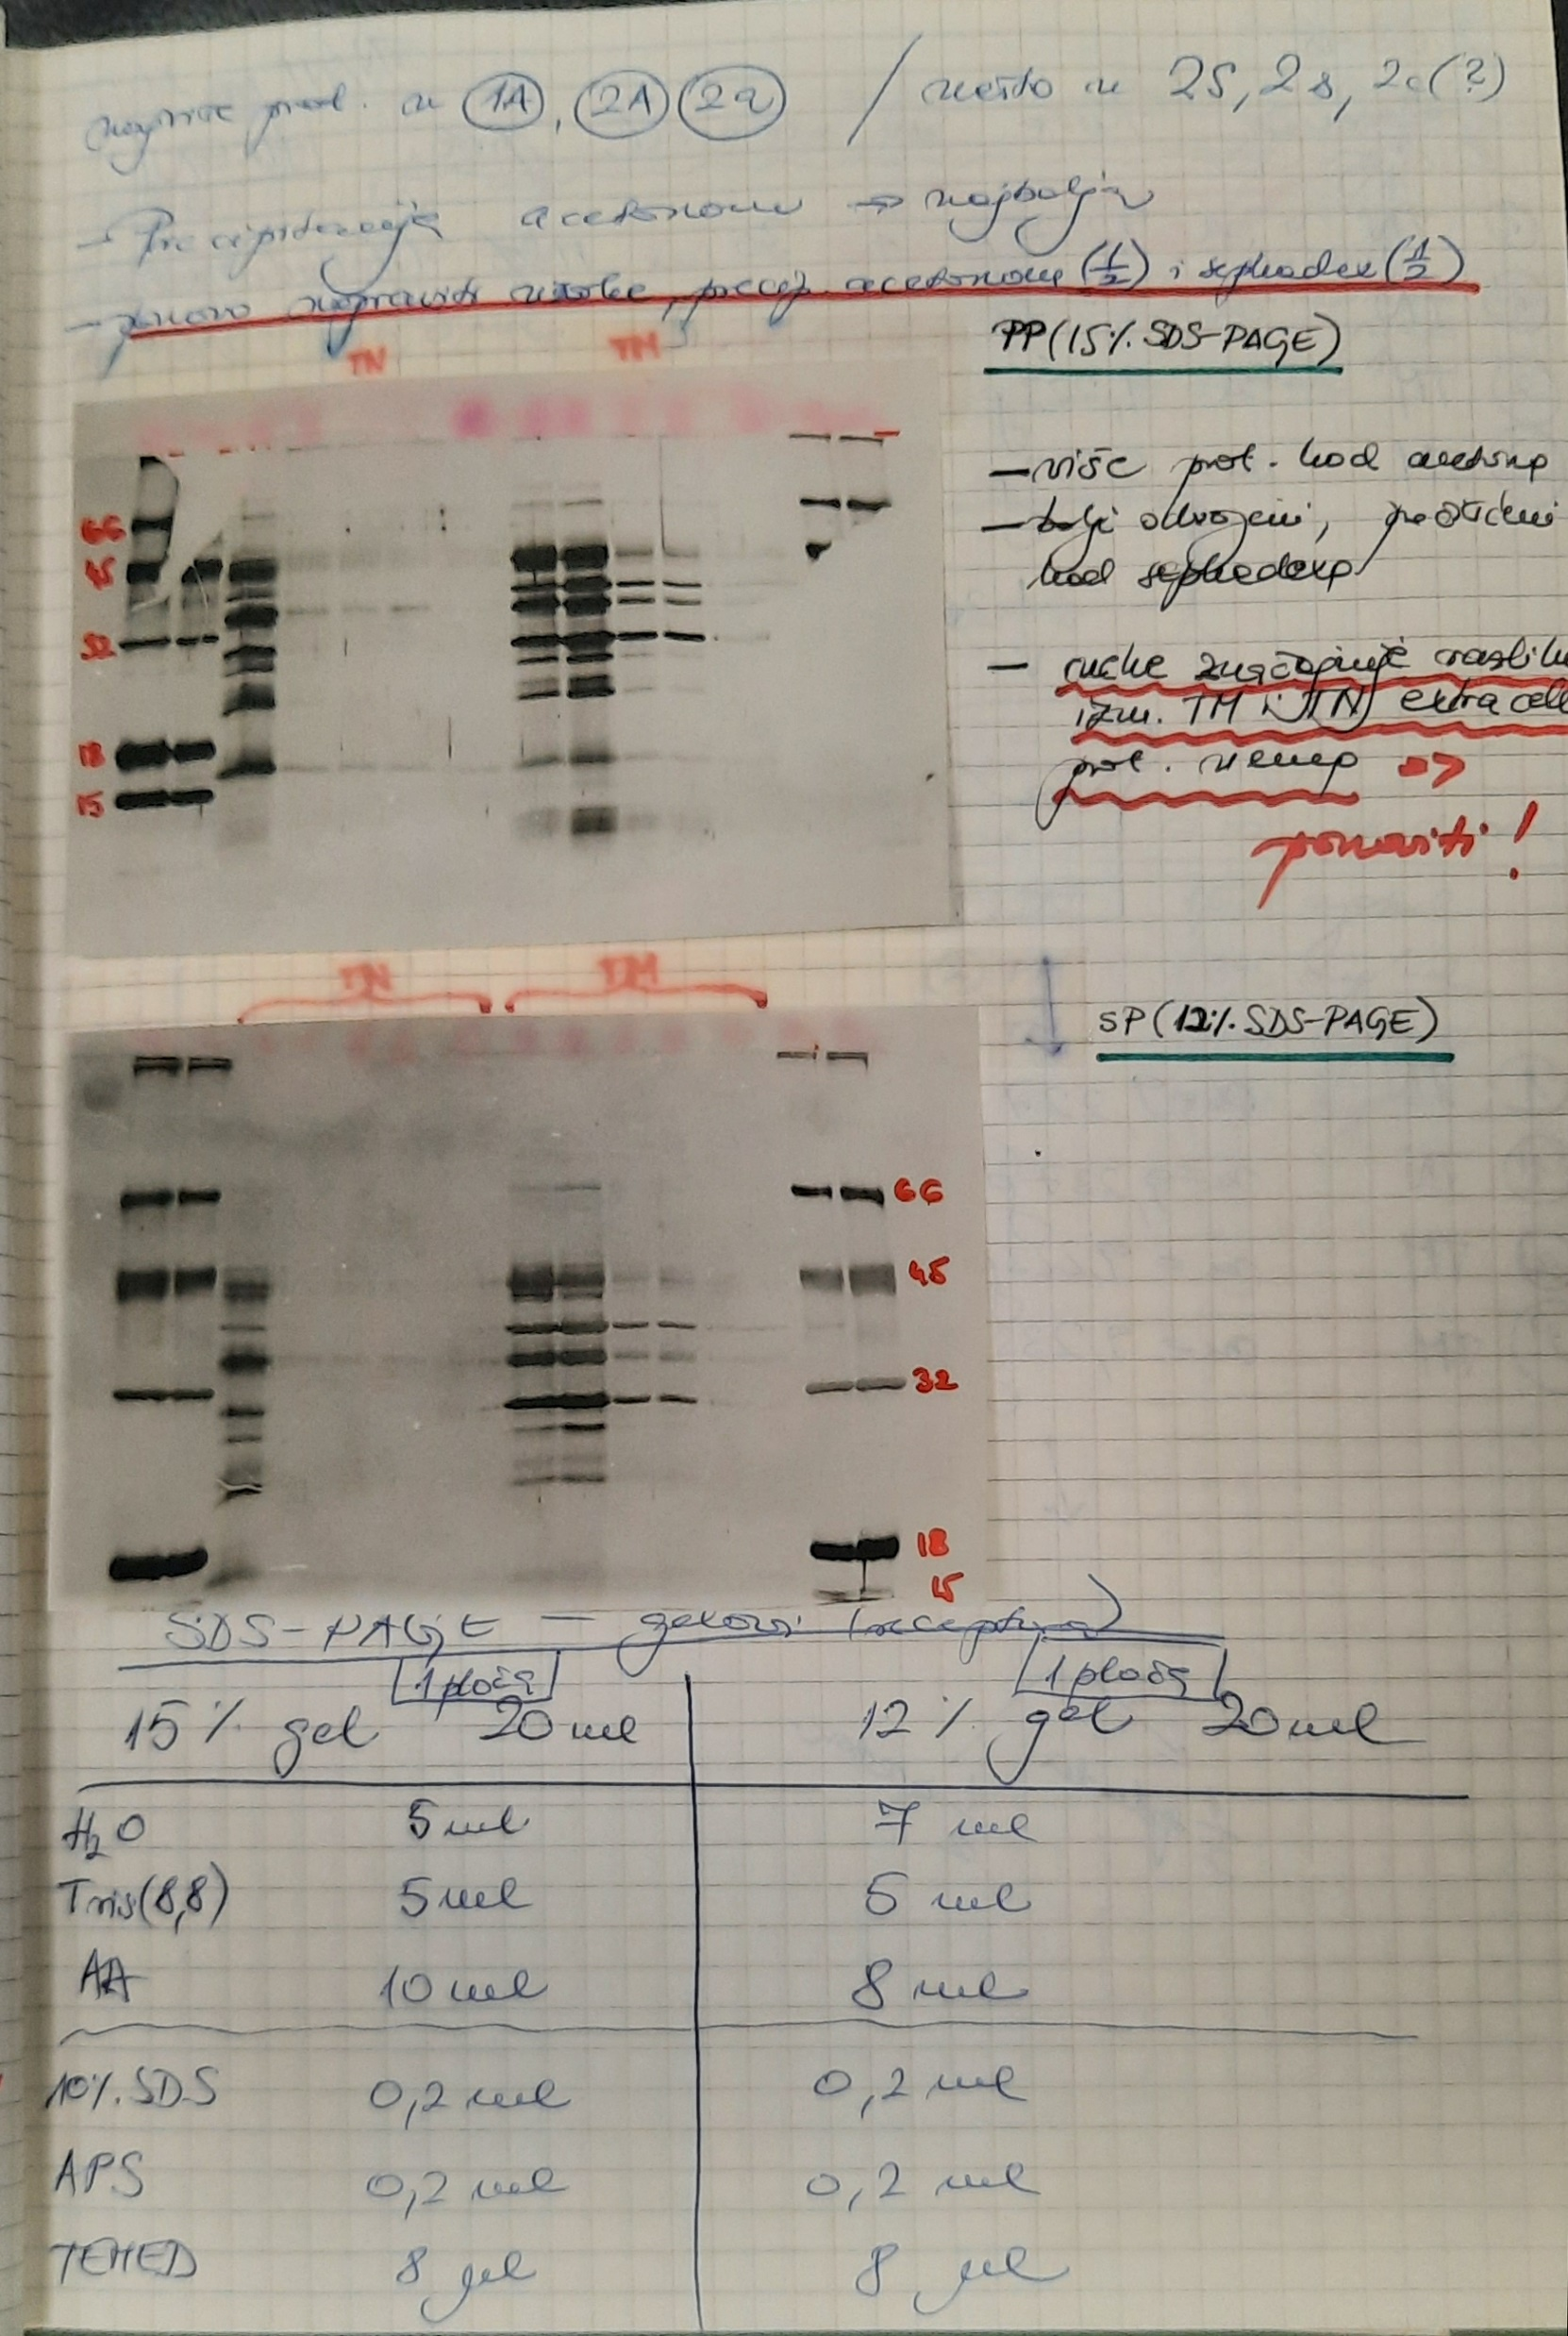 najviše prot. u 1A, 2A 2a / nešto u 2S, 2s, 2c(?)
→ Precipitacija acetonom → najbolja
– ponovo napraviti uzorke, precip. acetonom (1/2) i sephadex (1/2)
TN TM
PP (15% SDS-PAGE)
66
45
32
18
15
– više prot. kod acetona
– bolje odvojeni, kod sephadexa
– neke značajnije razlike
izm. TM i TN extracell
prot. nema =>
ponoviti!
TN TM
SP (12% SDS-PAGE)
66
45
32
18
15
SDS-PAGE – gelovi (receptura)
1 ploča 1 ploča
15% gel 20 ml 12% gel 20 ml
H₂O 5 ml 7 ml
Tris (8,8) 5 ml 5 ml
AA 10 ml 8 ml
10% SDS 0,2 ml 0,2 ml
APS 0,2 ml 0,2 ml
TEMED 8 µl 8 µl